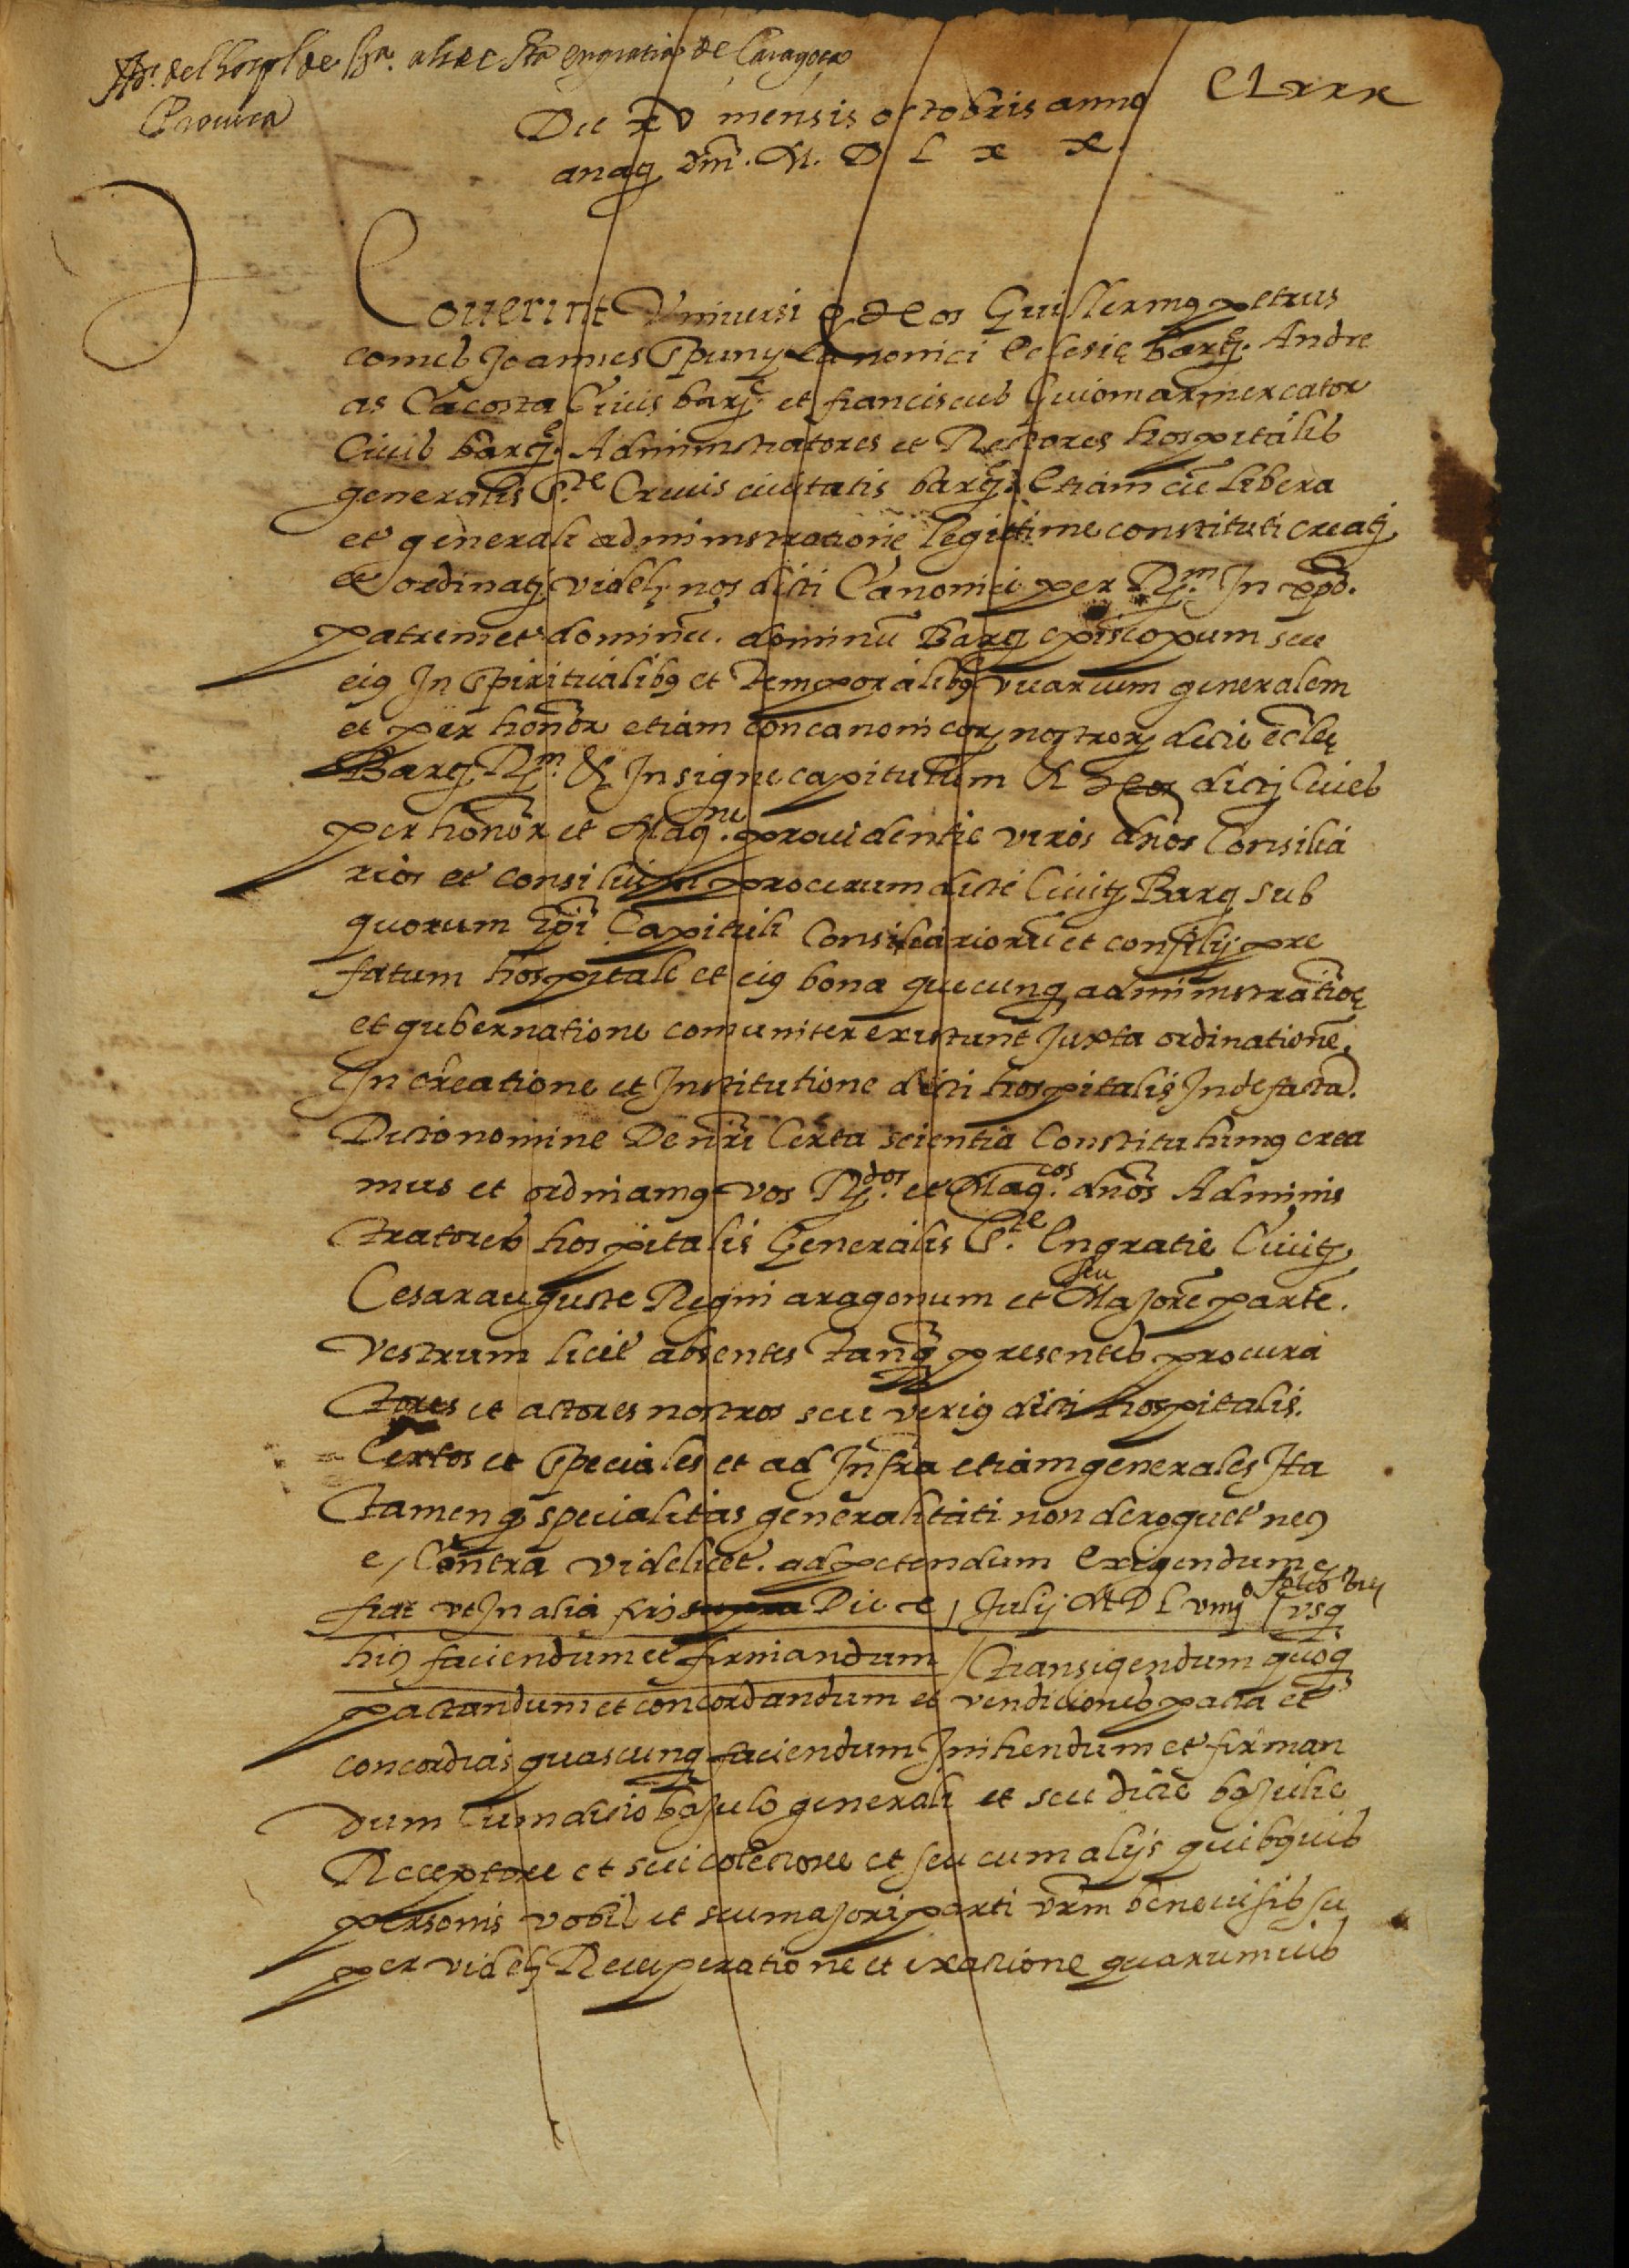 de Sta engratia de Caragoça
Procura
CLxxx
Die xv mensis octobris anno
anaq dni. M. D L x x.
Noverint Universi q Nos Guillermq petrus
comes Joannes Spuny Canonici Eclesię barq. Andre
as Cacosta Civis barq. et franciscus Guiomar mercator
Civis barq. Administratores et Rectores hospitalis
generalis S.te Crucis civitatis barq. Etiam cū libera
et generali administratione legittime constituti creatj
et ordinatj videlz nos dicti Canonici per R.m In xpo.
patrem et dominū. dominū Barq episcopum seu
eiq In Spiritualibq et Temporalibq vicarium generalem
et per honor etiam concanonicorz nostrorz dicte ecclię
Barq R.m & Insigne capitulum Et Nos dictj Cives
per honor et Mag.ne providentie viros dnos Consilia
rios et consilium procerum dicte Civitz Barq sub
quorum Epi Capituli Consiliariorū et consilij pre
fatum hospitale et eiq bona quecunq administratiōe
et gubernatione comuniter existunt Juxta ordinationē
In creatione et Institutione dicti hospitalis Inde factā.
Dicto nomine De nrī Certa scientia Constituhimq crea
mus et ordinamq vos R.dos et Mag.cos dnos Adminis
tratores hospitalis Generalis S.te Engratie Civitz
Cesarauguste Regni aragonum et seu Majorē partē.
vestrum licet absentes tanq presentes procura
tores et actores nostros seu veriq dicti hospitalis.
Certos et Speciales et ad Infra etiam generales Ita
tamen q specialitas generalitati non deroguet neq
e / Contra videlicet. ad petendum Exigendum e
fiat ut In alia Die x Julij M D L viiij usq
hiq faciendum et firmandum / Transigendum quoq
pactandum et concordandum et vendiciones pacta et
concordias quascunq faciendum Inihendum et firman
dum Cum dicto bajulo generali et seu dicte bajulie
Receptore et seu colectore et seu cum alijs quibquis
personis vobis et seu majori parti vrm benevisis su
per videlz Recuperatione et exactione quarumvis